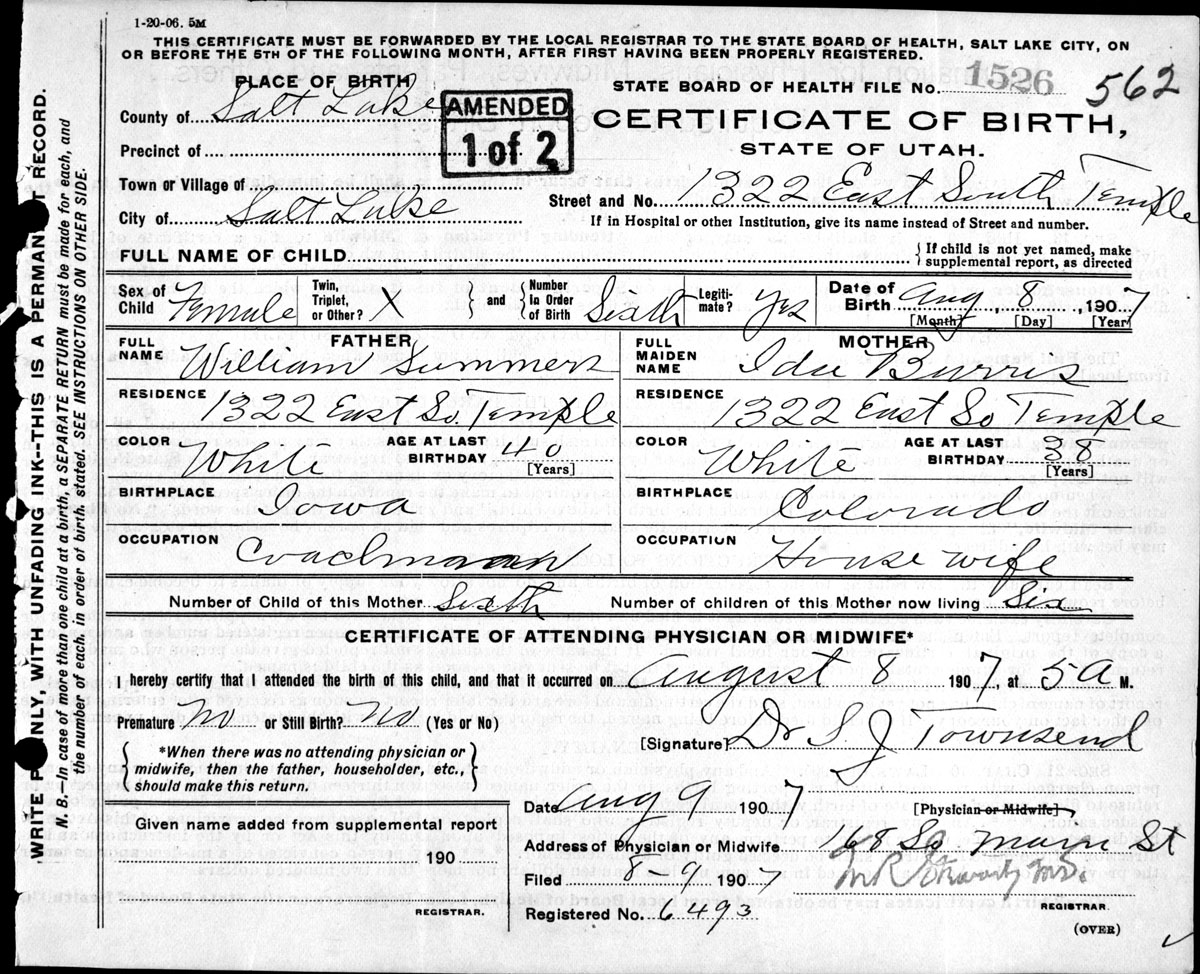 1-20-06. 5M
THIS CERTIFICATE MUST BE FORWARDED BY THE LOCAL REGISTRAR TO THE STATE BOARD OF HEALTH, SALT LAKE CITY, ON
OR BEFORE THE 5TH OF THE FOLLOWING MONTH, AFTER FIRST HAVING BEEN PROPERLY REGISTERED.
PLACE OF BIRTH
STATE BOARD OF HEALTH FILE No. 1526 562
County of Salt Lake
AMENDED
1 of 2
CERTIFICATE OF BIRTH,
STATE OF UTAH.
Precinct of
Town or Village of
Street and No. 1322 East South Temple
City of Salt Lake
If in Hospital or other Institution, give its name instead of Street and number.
FULL NAME OF CHILD
{If child is not yet named, make supplemental report, as directed
Sex of Child Female Twin, Triplet, or Other? X } and { Number in Order of Birth Sixth Legiti-mate? Yes Date of Birth Aug 8, 1907
[Month] [Day] [Year]
FATHER
MOTHER
FULL NAME William Summers
FULL MAIDEN NAME Ida Burris
RESIDENCE 1322 East So. Temple
RESIDENCE 1322 East So Temple
COLOR White AGE AT LAST BIRTHDAY 40 [Years]
COLOR White AGE AT LAST BIRTHDAY 38 [Years]
BIRTHPLACE Iowa
BIRTHPLACE Colorado
OCCUPATION Coachman
OCCUPATION House wife
Number of Child of this Mother Sixth Number of children of this Mother now living Six
CERTIFICATE OF ATTENDING PHYSICIAN OR MIDWIFE*
I hereby certify that I attended the birth of this child, and that it occurred on August 8 1907, at 5 a M.
Premature? No or Still Birth? No (Yes or No)
[Signature] Dr S. J Townsend
{*When there was no attending physician or
midwife, then the father, householder, etc.,
should make this return.}
Date Aug 9 1907 [Physician or Midwife.]
Given name added from supplemental report
190
REGISTRAR.
Address of Physician or Midwife 168 So. Main St
Filed 8/9 1907
Registered No. 6493
REGISTRAR.
(OVER)
WRITE PLAINLY, WITH UNFADING INK--THIS IS A PERMANENT RECORD.
N. B.--In case of more than one child at a birth, a SEPARATE RETURN must be made for each, and
the number of each, in order of birth, stated. SEE INSTRUCTIONS ON OTHER SIDE.